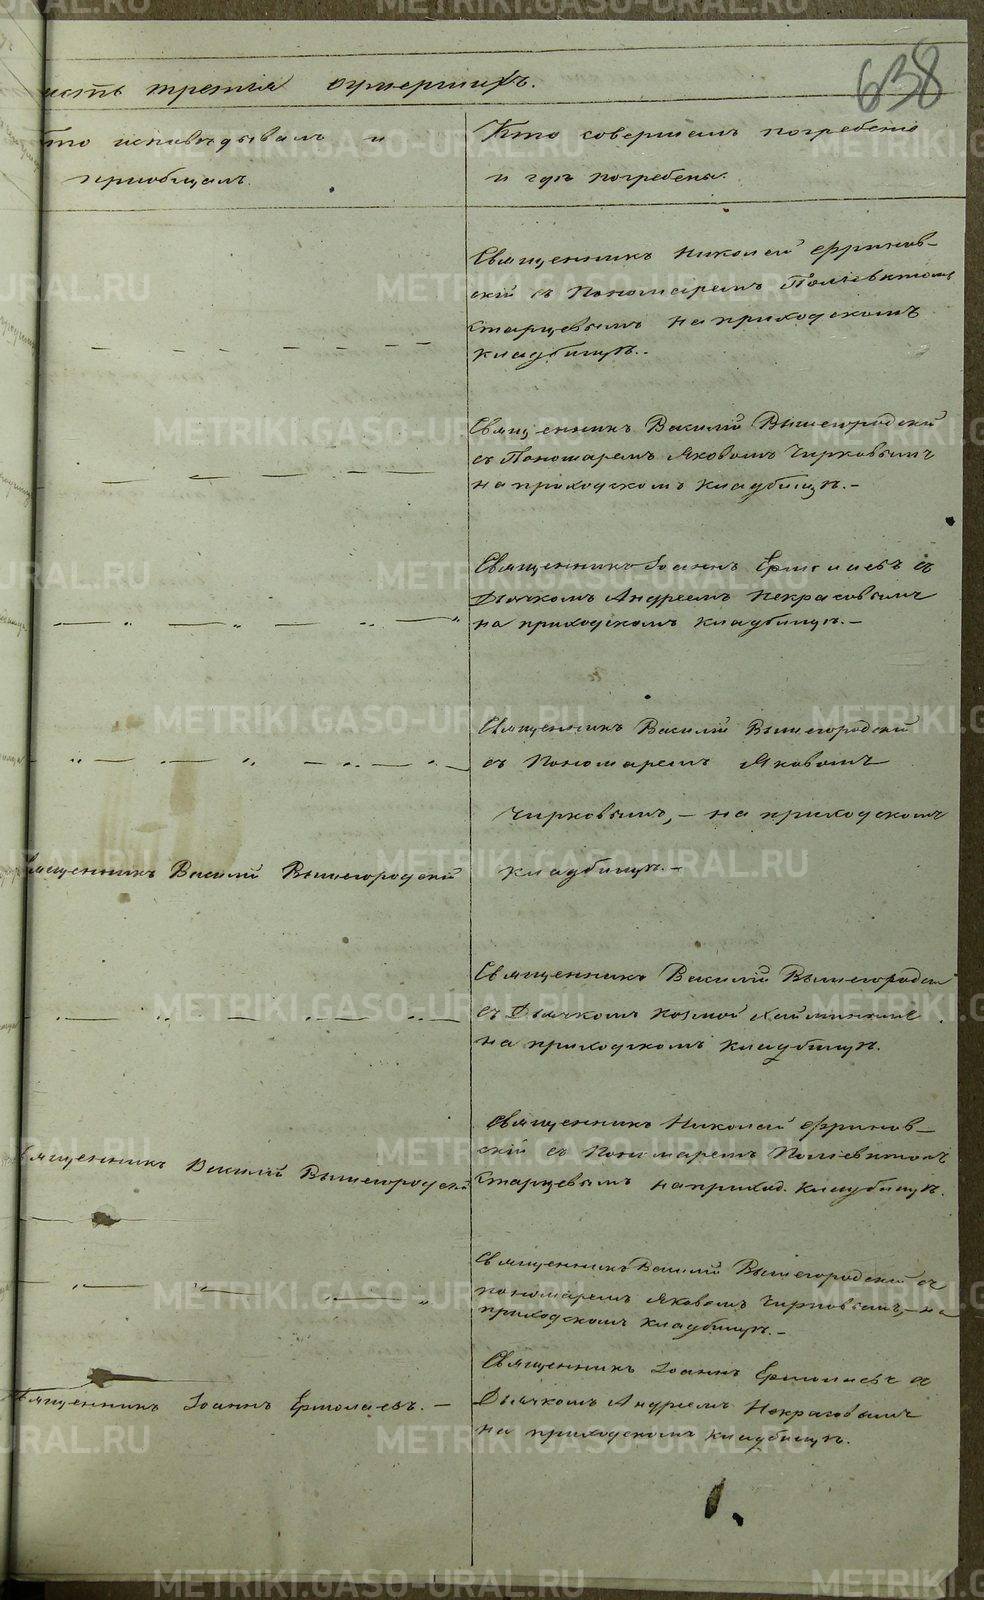 638
часть третія о умершихъ.
Кто исповѣдывалъ и
пріобщалъ.
Кто совершалъ погребеніе
и гдѣ погребены.
Священникъ Николай Фринов-
скій съ Пономаремъ Поліевктомъ
Старцевымъ на приходскомъ
кладбищѣ.
Священникъ Василій Вышегородскій
съ Пономаремъ Яковомъ Чирковымъ
на приходскомъ кладбищѣ.-
Священникъ Іоаннъ Ермолаевъ съ
Дьячкомъ Андреемъ Некрасовымъ
на приходскомъ кладбищѣ.-
Священникъ Василій Вышегородскій
съ Пономаремъ Яковомъ
Чирковымъ,- на приходскомъ
кладбищѣ.-
Священникъ Василій Вышегородскій
Священникъ Василій Вышегородскій
съ Дьячкомъ Козмой
на приходскомъ кладбищѣ.
Священникъ Николай Фринов-
скій съ Пономаремъ Поліевктомъ
Старцевымъ на приход. кладбищѣ.
Священникъ Василій Вышегородскій
Священникъ Василій Вышегородскій съ
пономаремъ Яковомъ Чирковымъ,- на
приходскомъ кладбищѣ.-
Священникъ Іоаннъ Ермолаевъ.-
Священникъ Іоаннъ Ермолаевъ съ
Дьячкомъ Андреемъ Некрасовымъ
на приходскомъ кладбищѣ.
METRIKI.GASO-URAL.RU